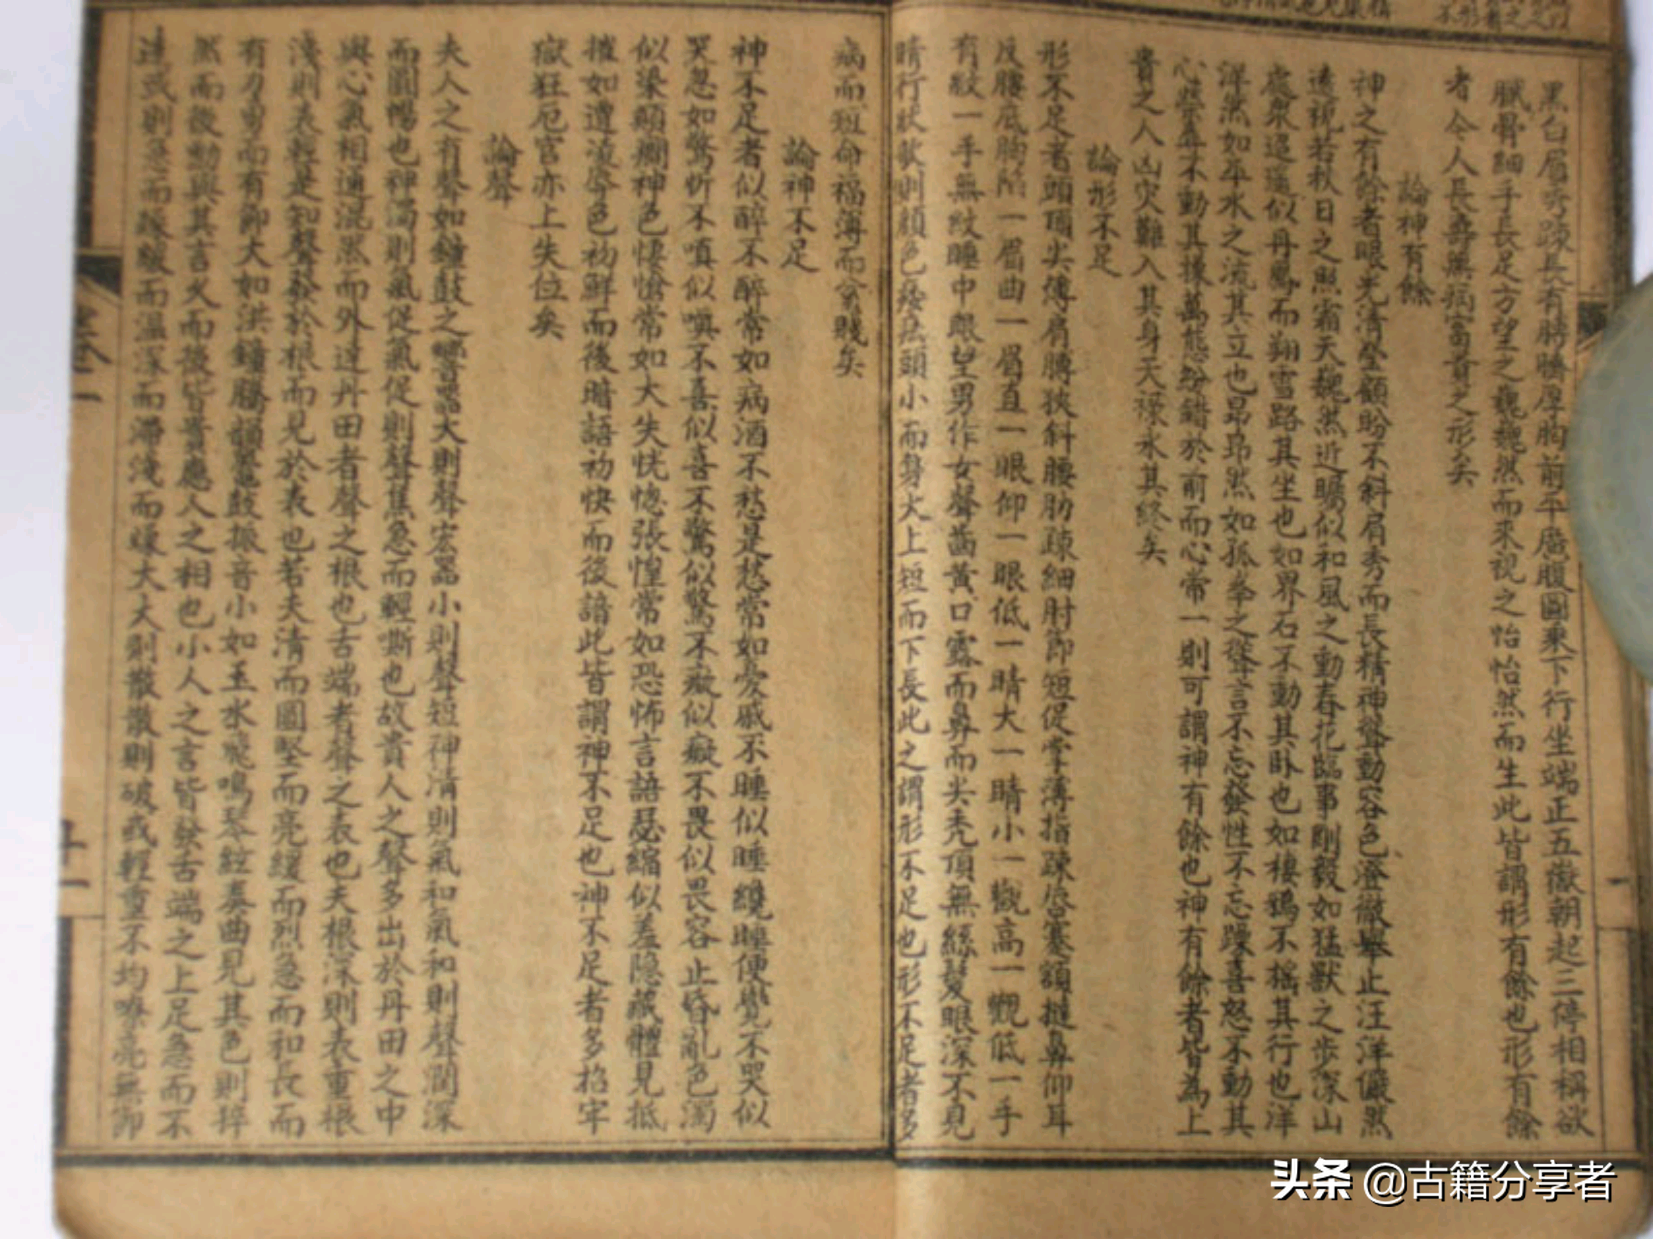 黑白眉秀疎長有膊膊厚胸前平廣腹圓垂下行坐端正五嶽朝起三停相稱欲
膩骨細手長足方望之巍巍然而來視之怡怡然而生此皆謂形有餘也形有餘
者令人長壽無病富貴之形矣
論神有餘
神之有餘者眼光清瑩顧盼不斜眉秀而長精神聳動容色澄徹舉止汪洋儼然
遠視若秋日之照霜天巍然近矚似和風之動春花臨事剛毅如猛獸之步深山
處衆迢遙似丹鳳而翔雪路其坐也如界石不動其臥也如棲鴉不搖其行也洋
洋然如平水之流其立也昂昂然如孤峯之聳言不忘發性不忘躁喜怒不動其
心榮辱不動其操萬態紛錯於前而心常一則可謂神有餘也神有餘者皆為上
貴之人凶災難入其身天祿永其終矣
論形不足
形不足者頭頂尖薄肩膊狹斜腰肋疎細肘節短促掌薄指疎唇蹇額撻鼻仰耳
反腰底胸陷一眉曲一眉直一眼仰一眼低一睛大一睛小一顴高一顴低一手
有紋一手無紋睡中眼望男作女聲齒黃口露而鼻而尖禿頂無縣髮眼深不見
睛行狀欹側顏色痿怯頭小而身大上短而下長此之謂形不足也形不足者多
病而短命福薄而貧賤矣
論神不足
神不足者似醉不醉常如病酒不愁是愁常如憂戚不睡似睡纔睡便覺不哭似
哭忽如驚忻不嗔似嗔不喜似喜不驚似驚不癡似癡不畏似畏容止昏亂色濁
似染顛癇神色悽愴常如大失恍惚張惶常如恐怖言語瑟縮似羞隱藏體見抵
摧如遭凌辱色初鮮而後暗語初快而後諳此皆謂神不足也神不足者多招牢
獄狂厄官亦上失位矣
論聲
夫人之有聲如鐘鼓之響器大則聲宏器小則聲短神清則氣和氣和則聲潤深
而圓暢也神濁則氣促氣促則聲焦急而輕嘶也故貴人之聲多出於丹田之中
與心氣相通混然而外達丹田者聲之根也舌端者聲之表也夫根深則表重根
淺則表輕是知聲發於根而見於表也若夫清而圓堅而亮緩而烈急而和長而
有力勇而有節大如洪鐘騰韻鼉鼓振音小如玉水飛鳴琴絃奏曲見其色則猝
然而後動與其言久而後皆貴應人之相也小人之言皆發舌端之上足急而不
達或則急而嘶緩而溫深而滯淺而燥大大則散散則破或輕重不均嘹亮無節
頭條 @古籍分享者